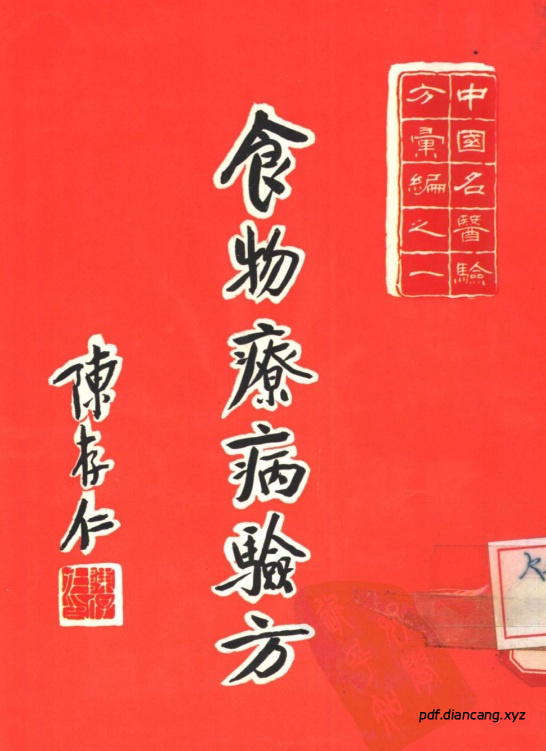 中國名醫驗
方彙編之一
食物療病驗方
陳存仁
pdf.diancang.xyz